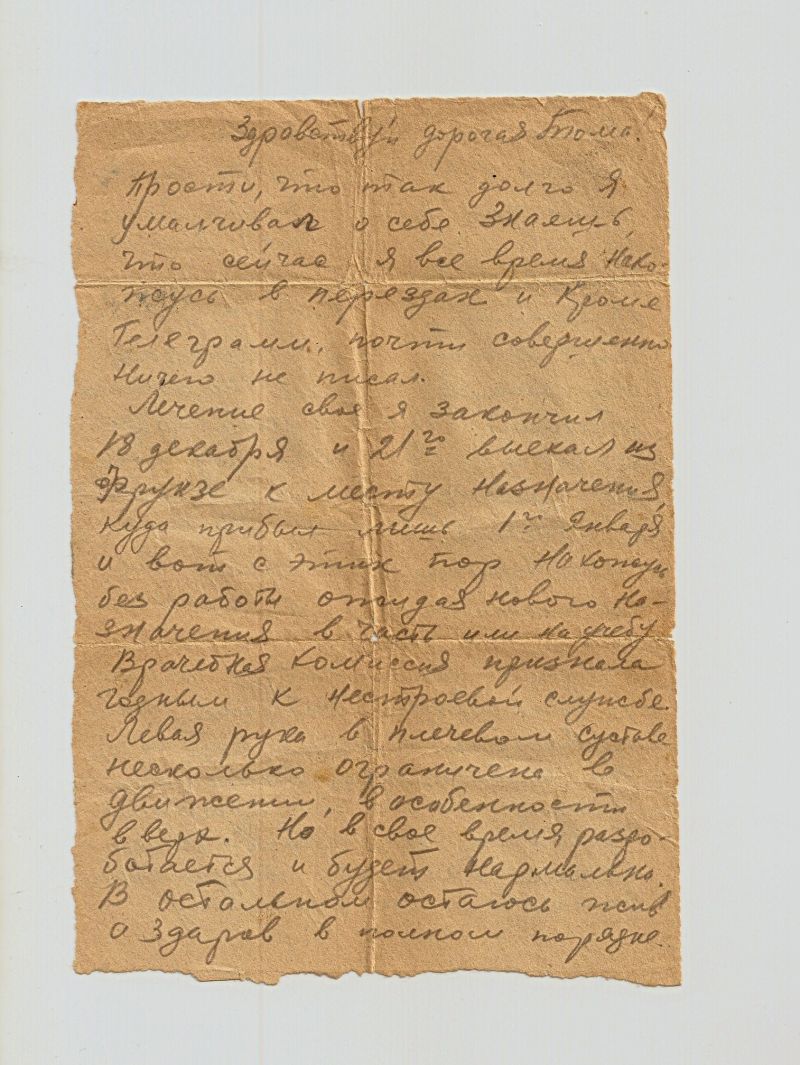 Здравствуй дорогая Тома!
Прости, что так долго я
умалчивал о себе. Знаешь,
что сейчас я все время нахо-
жусь в переездах и кроме
Телеграмм, почти совершенно
ничего не писал.
Лечение свое я закончил
18 декабря и 21го выехал из
Фрунзе к месту назначения,
куда прибыл лишь 1го января
и вот с этих пор нахожусь
без работы ожидая нового на-
значения в часть или на учебу
Врачебная комиссия признала
годным к нестроевой службе.
Левая рука в плечевом суставе
несколько ограничена в
движении, в особенности
в верх. Но в свое время разро-
ботается и будет нармально.
В остальном остаюсь жив
и здаров в полном порядке.